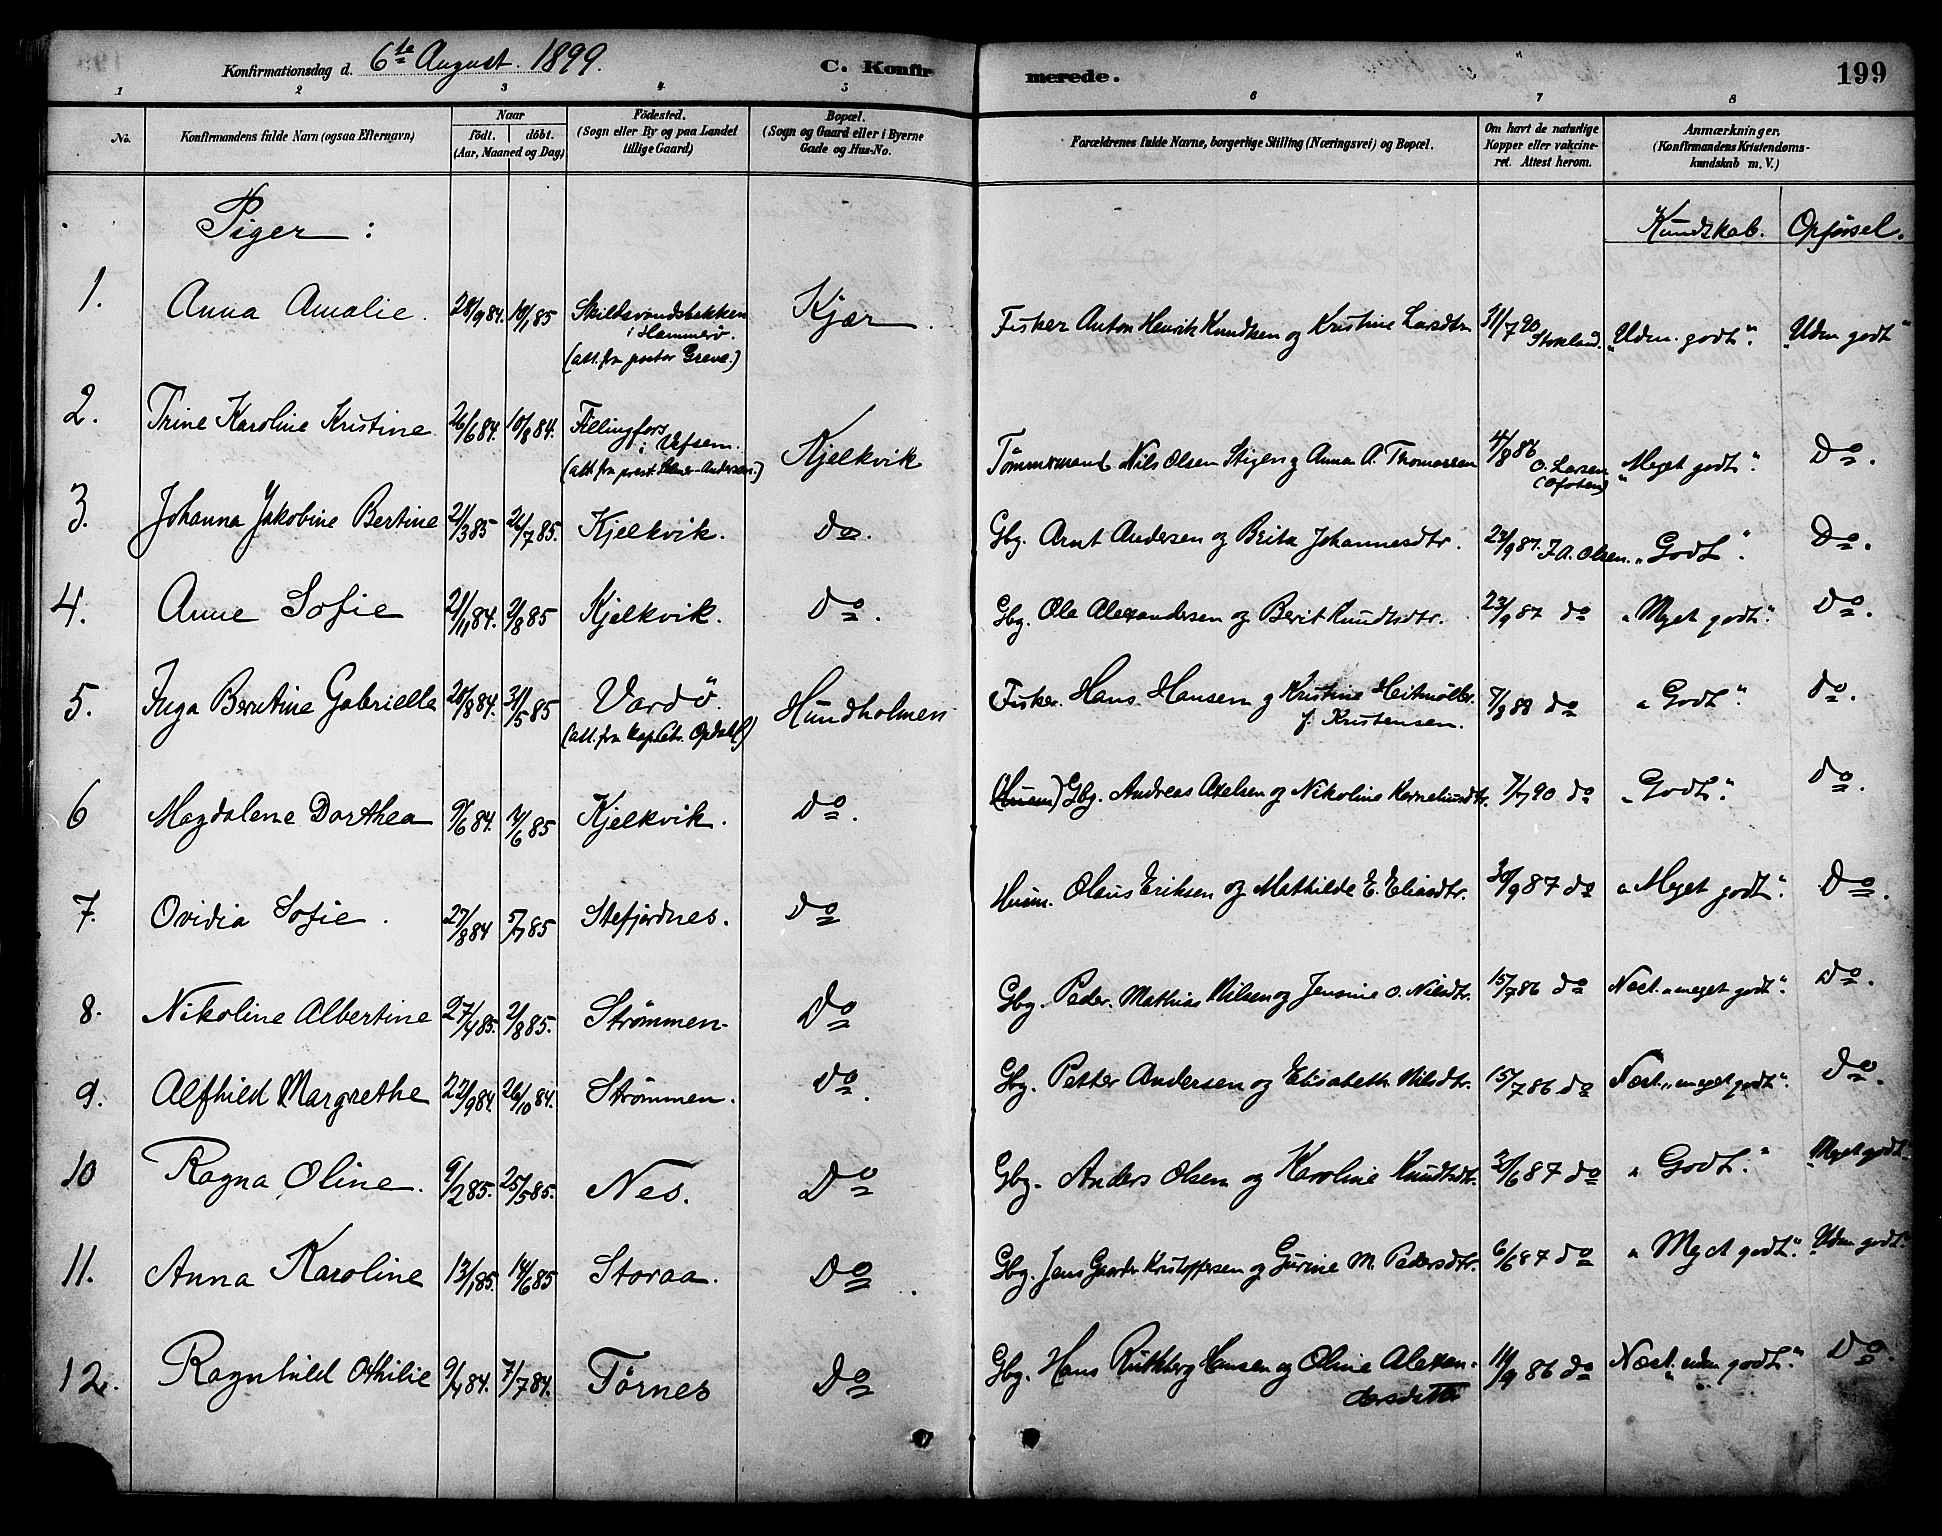 Konfirmationsdag d. 6te August 1899. C. Konfirmerede. 199
1 2 3 4 5 6 7 8
No. Konfirmandens fulde Navn (ogsaa Efternavn) Naar födt. döbt. (Aar, Maaned og Dag) Födested. (Sogn eller By og paa Landet tillige Gaard) Bopæl. (Sogn og Gaard eller i Byerne Gade og Hus-No. Forældrenes fulde Navne, borgerlige Stilling (Næringsvei) og Bopæl. Om havt de naturlige Kopper eller vakcineret. Attest herom. Anmærkninger. (Konfirmandens Kristendomskundskab m. V.)
Piger : Kundskab. Opførsel.
1. Anna Amalie. 28/9 84. 18/1 85 i Hammerø. (att. fra pastor Greve.) Kjær. Fisker Anton Henrik Knudsen og Kristine Larsdtr 31/7 90 Stokland. "Udm. godt". "Udm. godt"
2. Trine Karoline Kristine 26/6 84. 10/8 84. Fillingfors i Vefsen. Kjelkvik Tömmermand Nils Olsen Stigen og Anna A. Thomassen 4/8 86 O. Larsen (Ofoten) "Meget godt". Do.
3. Johanna Jakobine Bertine 21/3 85 26/7 85. Kjelkvik. Do. Gbg. Arnt Andersen og Berita Johannesdtr. 23/9 87. J. A. Olsen. "Godt". Do.
4. Anne Sofie 21/11 84. 2/8 85 Kjelkvik. Do. Gbg. Ole Alexandersen og Berit Knudtsdtr. 23/9 87 do "Meget godt". Do.
5. Inga Berntine Gabrielle 28/8 84. 31/5 85 Vardö. Hundholmen Fisker. Hans Hansen og Kristine Heitmöller f. Kristensen. 7/8 88 do "Godt". do.
6 Magdalene Dorthea 9/6 84. 14/6 85 Kjelkvik. Do. (Husm) Gbg. Andreas Axelsen og Nikoline Korneliusdtr. 7/7 90 do "Godt". do.
7. Ovidia Sofie. 27/8 84 5/7 85 Stefjordnes. Do Husm. Olaus Eriksen og Mathilde E. Eliasdtr. 30/9 87 do "Meget godt". Do.
8. Nikoline Albertine 27/4 85. 2/8 85. Strømmen. Do Gbg. Peder Mathias Nilsen og Jensine O. Nilsdtr. 15/7 86 do Næst. "meget godt". Do.
9. Alfhild Margrethe 22/9 84. 26/10 84. Strømmen. Do. Gbg. Petter Andersen og Elisabeth Nilsdtr. 15/7 86 do Næst. "meget godt". Do.
10 Ragna Oline. 9/2 85. 25/5 85. Nes. Do Gbg. Anders Olsen og Karoline Knudtsdtr. 30/6 87 do "Godt." "Meget godt.
11. Anna Karoline 13/1 85. 14/6 85 Storaa. Do. Gbg. Jens Gaarder Kristoffersen og Gurine M. Pedersdtr. 6/6 87 do "Meget godt". "Udm. godt".
12. Ragnhild Othilie 9/4 84. 7/7 84. Tørnes Do Gbg. Hans Rutkberg Hansen og Oline Alexandersdatter 14/9 86 do Næst. "udm. godt". Do.